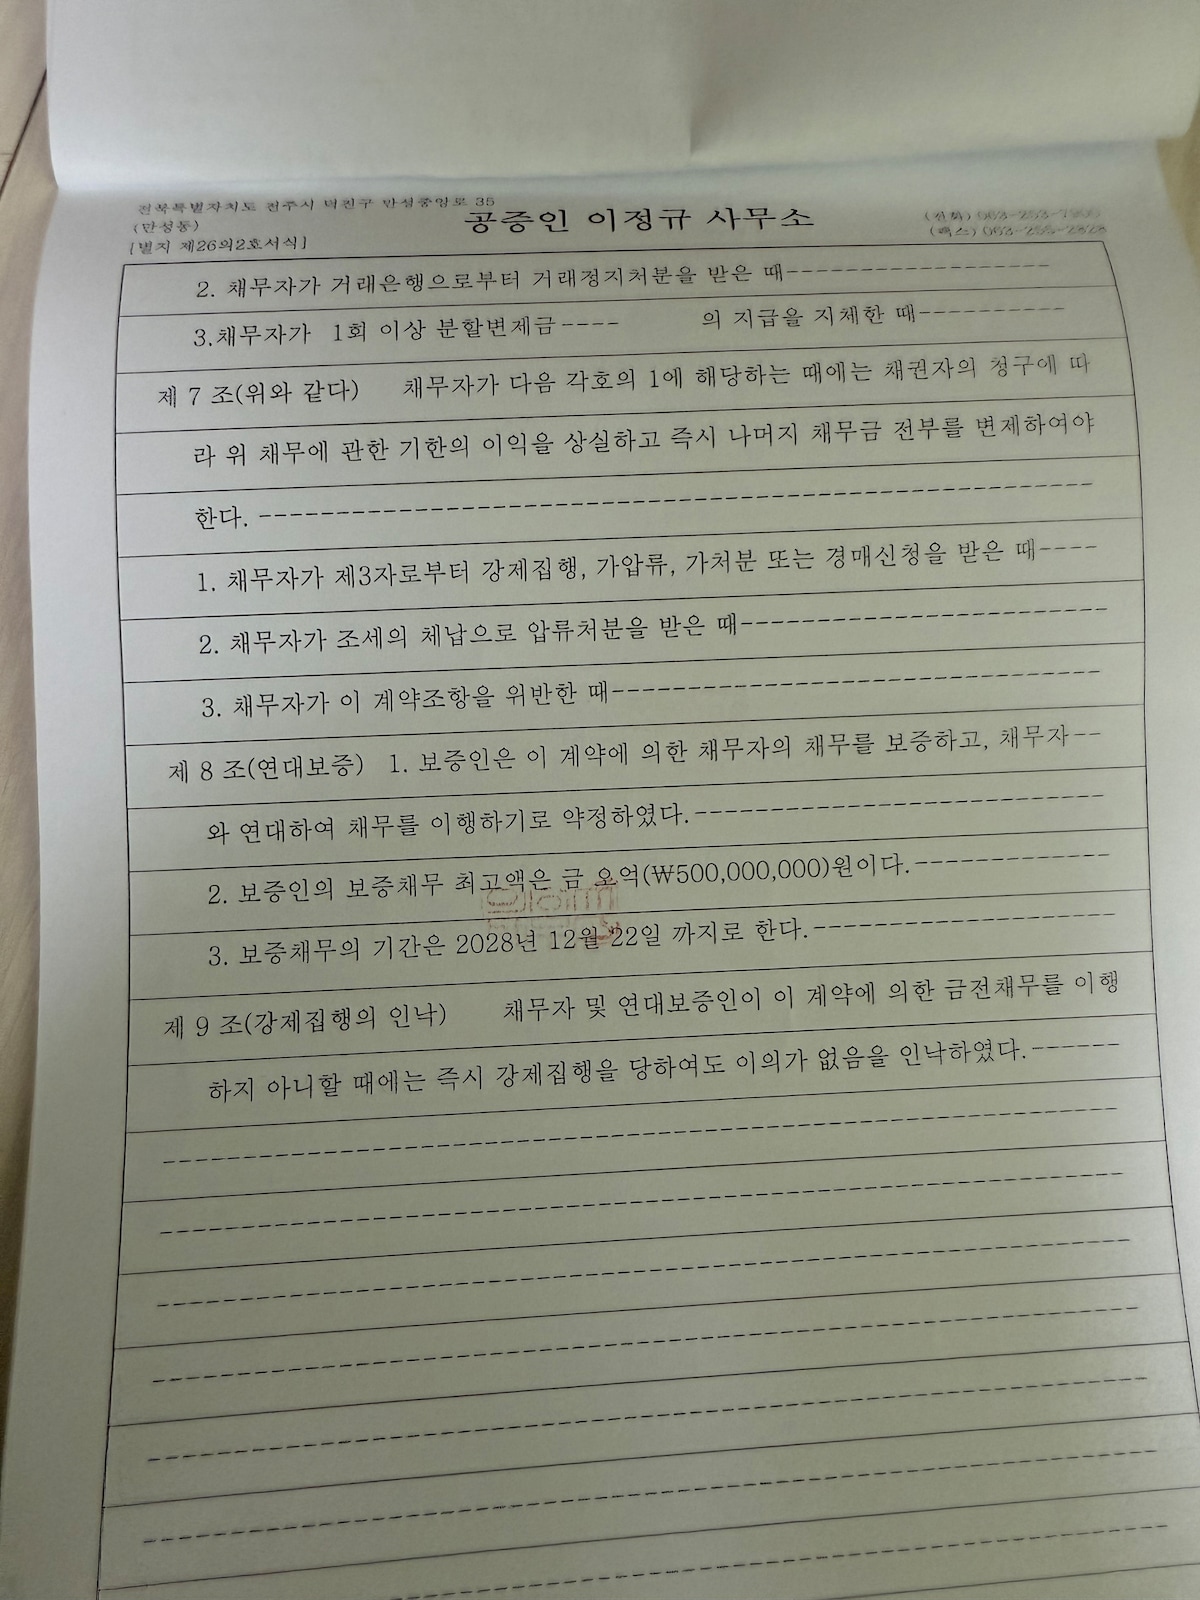 전북특별자치도 전주시 덕진구 만성중앙로 35
(만성동)
공증인 이정규 사무소
(전화) 063-253-7900
(팩스) 063-255-2828
[별지 제26의2호서식]
2. 채무자가 거래은행으로부터 거래정지처분을 받은 때--------------------
3.채무자가 1회 이상 분할변제금---- 의 지급을 지체한 때-----------
제 7 조(위와 같다) 채무자가 다음 각호의 1에 해당하는 때에는 채권자의 청구에 따
라 위 채무에 관한 기한의 이익을 상실하고 즉시 나머지 채무금 전부를 변제하여야
한다. ----------------------------------------------------------------
1. 채무자가 제3자로부터 강제집행, 가압류, 가처분 또는 경매신청을 받은 때----
2. 채무자가 조세의 체납으로 압류처분을 받은 때----------------------------
3. 채무자가 이 계약조항을 위반한 때--------------------------------------
제 8 조(연대보증) 1. 보증인은 이 계약에 의한 채무자의 채무를 보증하고, 채무자--
와 연대하여 채무를 이행하기로 약정하였다.--------------------------------
2. 보증인의 보증채무 최고액은 금 오억(₩500,000,000)원이다.---------------
3. 보증채무의 기간은 2028년 12월 22일 까지로 한다.-----------------------
제 9 조(강제집행의 인낙) 채무자 및 연대보증인이 이 계약에 의한 금전채무를 이행
하지 아니할 때에는 즉시 강제집행을 당하여도 이의가 없음을 인낙하였다.-------